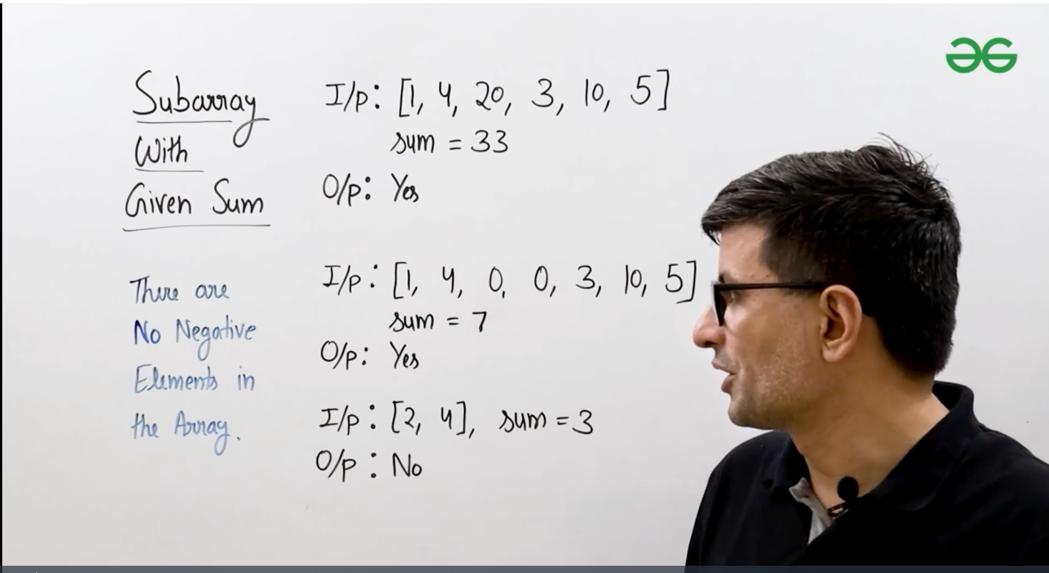 Subarray
With
Given Sum
There are
No Negative
Elements in
the Array.
I/p: [1, 4, 20, 3, 10, 5]
sum = 33
O/p: Yes
I/p: [1, 4, 0, 0, 3, 10, 5]
sum = 7
O/p: Yes
I/p: [2, 4], sum = 3
O/p: No